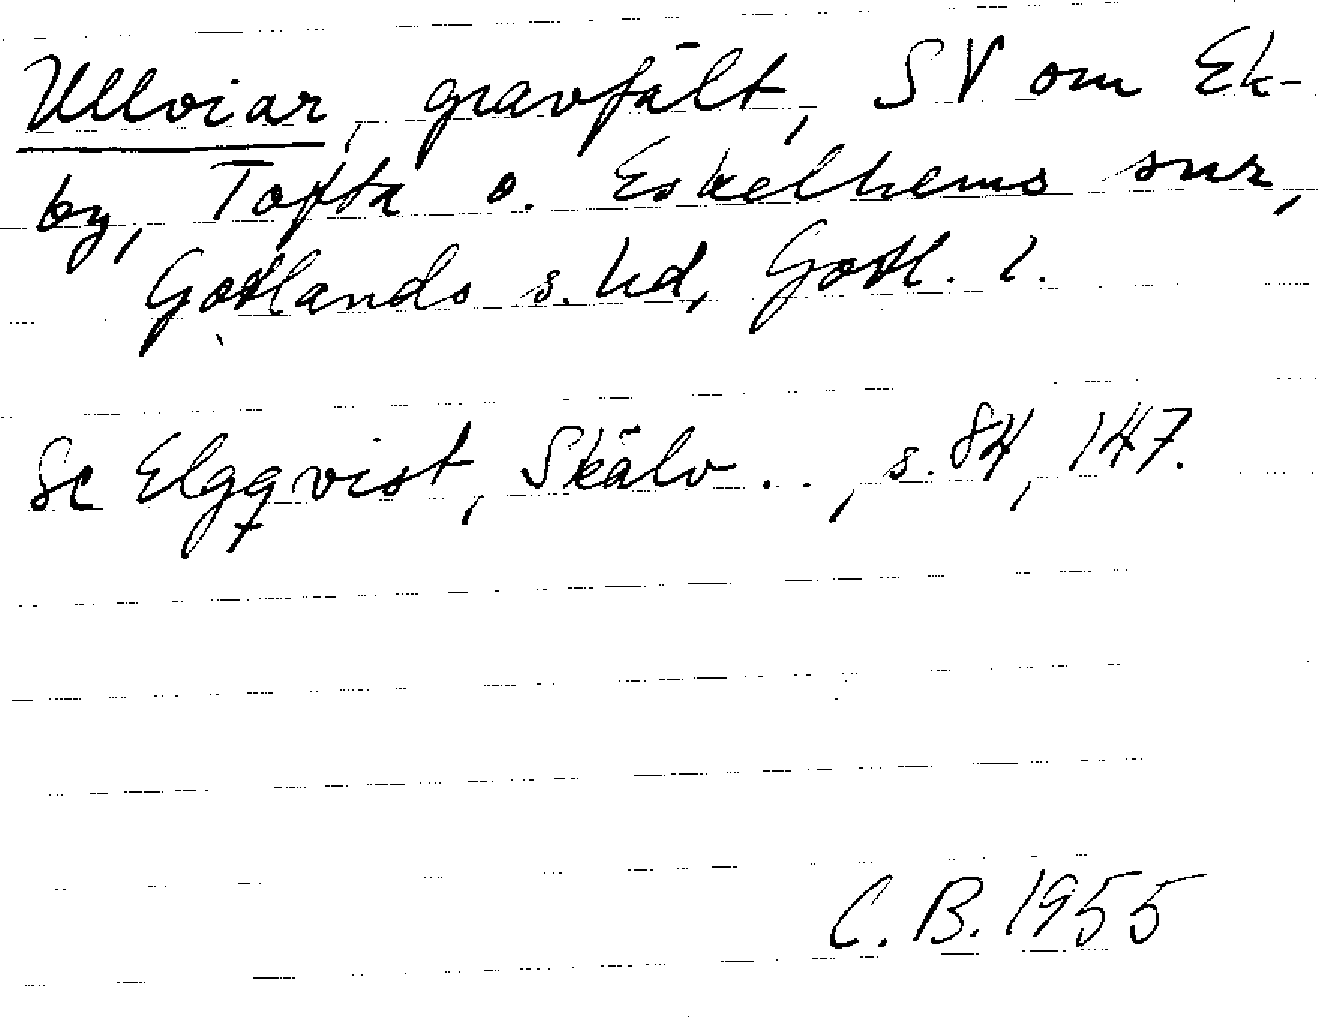 Ullviar, gravfält, SV om Ek-
by, Tofta o. Eskelhems snr,
Gotlands s. hd, Gotl. l.
Se Elgqvist, Skälv . . , s. 84, 147.
C. B. 1955